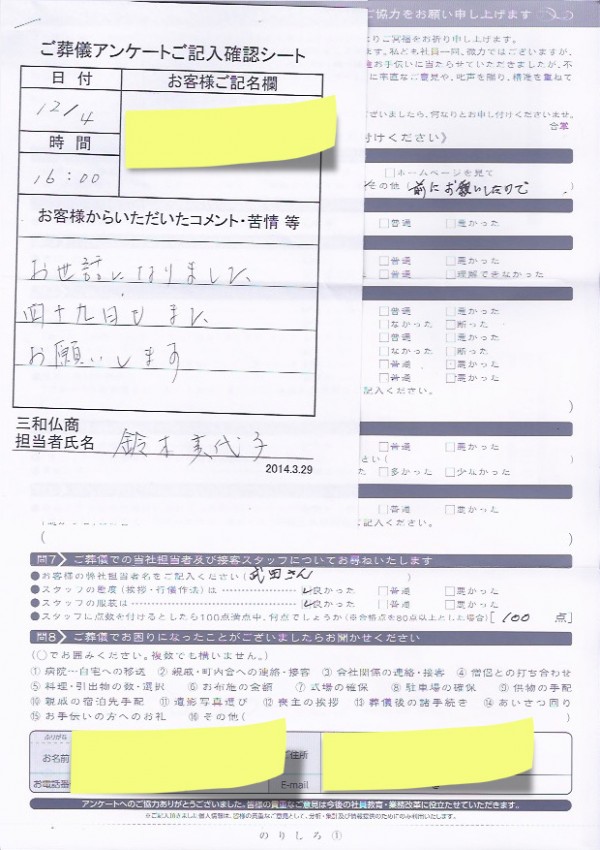 ご協力をお願い申し上げます
ご葬儀アンケートご記入確認シート
日付
お客様ご記名欄
12/4
時間
16:00
お客様からいただいたコメント・苦情 等
お世話になりました
四十九日もまた
お願いします
三和仏商
担当者氏名 鈴木美代子
2014.3.29
りご冥福をお祈り申し上げます。
ます。私ども社員一同、微力ではございますが、
お手伝いに当たらせていただきましたが、不
に率直なご意見や、叱声を賜り、精進を重ねて
ございましたら、何なりとお申し付けくださいませ。
合掌
付けください》
□ホームページを見て
その他(前にお願いしたので
□普通 □悪かった
□普通 □悪かった
□普通 □理解できなかった
□普通 □悪かった
□なかった □断った
□普通 □悪かった
□なかった □断った
□普通 □悪かった
□普通 □悪かった
記入ください。
)
□普通 □悪かった
さい(
□多かった □少なかった
□普通 □悪かった
記入ください。
( )
問7 ご葬儀での当社担当者及び接客スタッフについてお尋ねいたします
●お客様の弊社担当者名をご記入ください(武田さん
●スタッフの態度(挨拶・行儀作法)は ☑良かった □普通 □悪かった
●スタッフの服装は ☑良かった □普通 □悪かった
●スタッフに点数を付けるとしたら100点満点中、何点でしょうか(※合格点を80点以上とした場合)[ 100 点]
問8 ご葬儀でお困りになったことがございましたらお聞かせください
(○でお囲みください。複数でも構いません。)
①病院…自宅への移送 ②親戚・町内会への連絡・接客 ③会社関係の連絡・接客 ④僧侶との打ち合わせ
⑤料理・引出物の数・選択 ⑥お布施の金額 ⑦式場の確保 ⑧駐車場の確保 ⑨供物の手配
⑩親戚の宿泊先手配 ⑪遺影写真選び ⑫喪主の挨拶 ⑬葬儀後の諸手続き ⑭あいさつ回り
⑮お手伝いの方へのお礼 ⑯その他( )
ふりがな
お名前
ご住所
お電話番
E-mail
アンケートへのご協力ありがとうございました。皆様の貴重なご意見は今後の社員教育・業務改革に役立たせていただきます。
※ご記入頂きました個人情報は、皆様の貴重なご意見として、分析・集計及び情報提供のためにのみ利用いたします。
のりしろ①